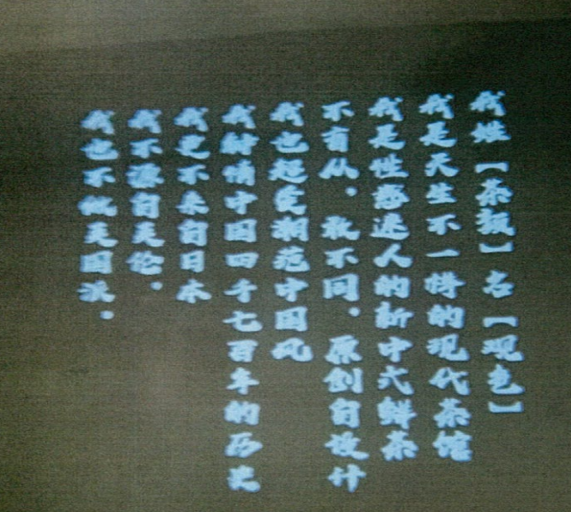 我姓【茶颜】名【观色】
我是天生不一样的现代茶馆
我是性感迷人的新中式鲜茶
不盲从。敢不同。原创自设计
我也起范潮范中国风
我钟情中国四千七百年的历史
我更不来自日本
我不源自英伦。
我也不似美国派。